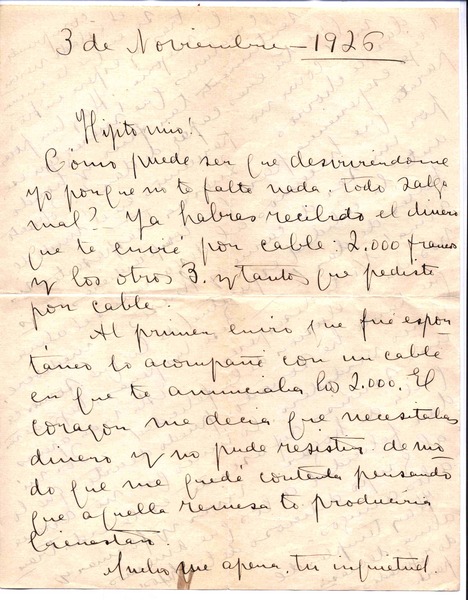 3 de Noviembre - 1926
Hijito mio!
Cómo puede ser que desviviéndome
yo porque no te falte nada, todo salga
mal? Ya habras recibido el dinero
que te envié por cable: 2.000 francos
y los otros 3. y tantos que pediste
por cable.
Al primer envio que fué espon-
táneo lo acompañé con un cable
en que te anunciaba los 2.000. El
corazon me decia que necesitabas
dinero y no pude resistir de mo-
do que me quedé contenta pensando
que aquella remesa te produciria
bienestar.
Mucho me apena tu inquietud.